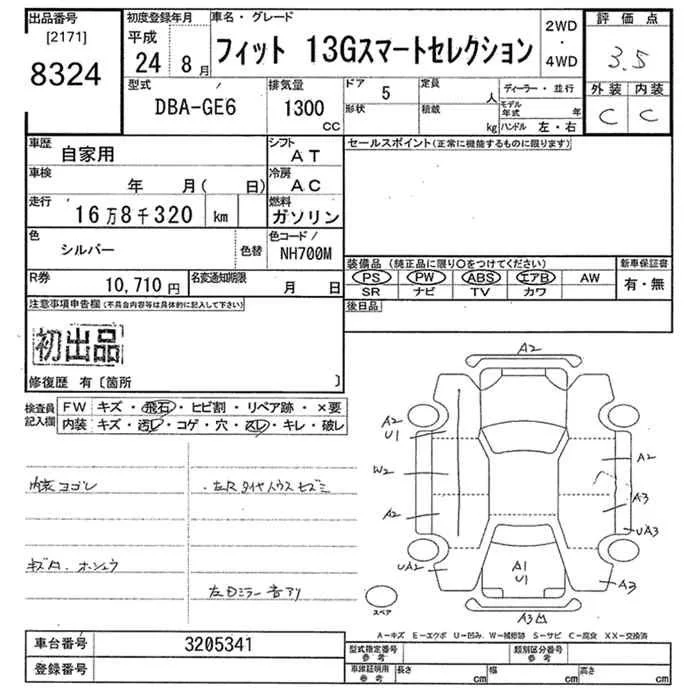 出品番号
[2171]
8324
初度登録年月
平成
24 8月
車名・グレード
フィット 13Gスマートセレクション
2WD
・
4WD
評価点
3.5
外装 内装
C C
型式
DBA-GE6
排気量
1300
CC
ドア 5
形状
定員 人
積載 kg
ディーラー・並行
モデル年式 年
ハンドル 左・右
車歴
自家用
シフト
AT
セールスポイント(正常に機能するものに限ります)
車検
年 月( 日)
冷房
AC
走行
16万8千320 km
燃料
ガソリン
色
シルバー
色替
色コード/
NH700M
装備品 (純正品に限り○をつけてください)
新車保証書
PS PW ABS エアB AW
SR ナビ TV カワ
有・無
R券
10,710円
名変通知期限
月 日
後日品
注意事項申告欄(不具合内容等は具体的に記入して下さい)
初出品
修復歴 有〔箇所 〕
検査員記入欄
FW キズ・飛石・ヒビ割・リペア跡・×要
内装 キズ・汚レ・コゲ・穴・スレ・キレ・破レ
内装ヨゴレ
左Rタイヤハウスヒズミ
キズ有.ホシュウ
左Dミラー音アリ
A2
A2
U1
W2
A2
UA2
A2
A3
UA3
A3
A1
U1
A3
スペア
A-キズ E-エクボ U-凹み W-補修跡 S-サビ C-腐食 XX-交換済
車台番号
3205341
登録番号
型式指定番号
参考
類別区分番号
参考
車庫証明用
参考
長さ cm
幅 cm
高さ cm